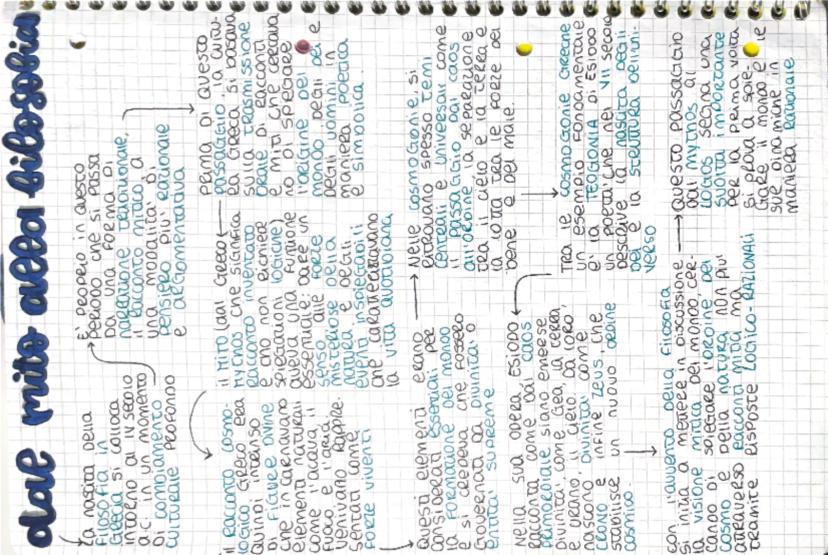 dal mito alla filosofia
La nascita della
filosofia in
Grecia si colloca
intorno al IV secolo
a.C. in un momento
di cambiamento
culturale profondo
È proprio in questo
periodo che si passa
da una forma di
narrazione tradizionale,
il racconto mitico a
una modalità di
pensiero più razionale
e argomentativa
Prima di questo
passaggio la cultu-
ra greca si basava
sulla trasmissione
orale di racconti
e miti che cercava
no di spiegare
l'origine del
mondo degli dei e
degli uomini in
maniera poetica
e simbolica.
il MITO (dal Greco)
mythos che significa
racconto inventato
e che non richiede
spiegazioni logiche)
aveva una funzione
essenziale: dare un
senso alle forze
misteriose della
natura e degli
eventi inspiegabili
che caratterizzavano
la vita quotidiana
il racconto cosmo-
logico greco era
quindi intriso
di figure divine
che incarnavano
elementi naturali
come l'acqua il
fuoco e l'aria
venivano rappre-
sentati come
forze viventi
Questi elementi erano
considerati essenziali per
la formazione del mondo
e si credeva che fossero
governati da divinità o
entità supreme
Nelle cosmogonie, si
ritrovano spesso temi
centrali e universali come
il passaggio dal caos
all'ordine, la separazione
tra il cielo e la terra e
la lotta tra le forze del
bene e del male.
Tra le cosmogonie greche
un esempio fondamentale
è la TEOGONIA di ESIODO
un poeta che nel VII secolo
descrive la nascita degli
dei e la struttura dell'uni-
verso
Nella sua opera ESIODO
racconta come dal caos
primordiale siano emerse
divinità come Gea, la terra,
e Urano, il cielo. Da loro,
nascono divinità come
crono e infine Zeus, che
stabilisce un nuovo ordine
cosmico.
con l'avvento della filosofia
si inizia a mettere in discussione
la visione mitica del mondo cer-
cando di spiegare l'ordine del
cosmo e della natura non più
attraverso racconti mitici ma
tramite risposte LOGICO-RAZIONALI
Questo passaggio
dal mythos al
logos segna una
svolta importante
per la prima volta
si prova a spie-
gare il mondo e le
sue dinamiche in
maniera Razionale